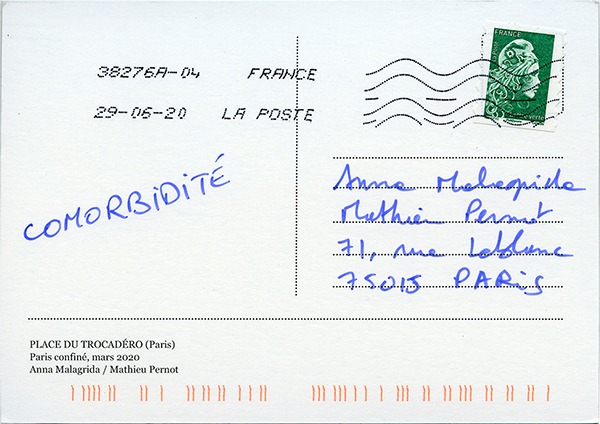 38276A-04 FRANCE
29-06-20 LA POSTE
FRANCE
COMORBIDITÉ
Anna Malagrida
Mathieu Pernot
71, rue Leblanc
75015 PARIS
PLACE DU TROCADÉRO (Paris)
Paris confiné, mars 2020
Anna Malagrida / Mathieu Pernot